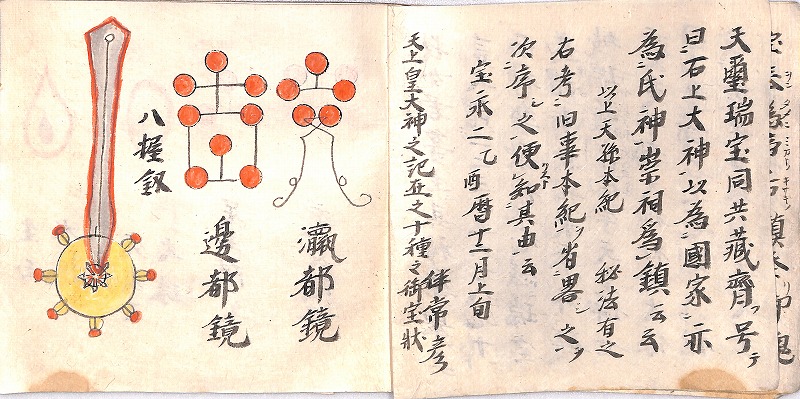 天璽瑞宝同共蔵齊フ号テ
曰ニ石上大神ト以為ニ國家ノ亦
為ニ氏神ト崇祠為レ鎮ト云云
以上天孫本紀 秘法有之
右考ニ旧事本紀ヲ省畧シ之ヲ
次序シ之ヲ便ス知其由ヲ云
宝永二乙酉暦十二月上旬
伴常彦
天上皇大神之記在之十種之御宝状
瀛都鏡
邊都鏡
八握劔